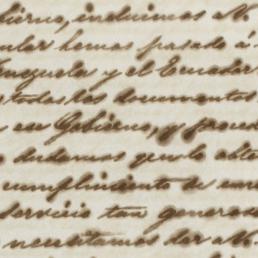 bierno, incluimos a V.
cular hemos pasado á
Venezuela y el Ecuador
todos los documentos
a ese Gobierno, y
o dudamos que lo obte
cumplimiento de
servicio tan generoso
necesitamos dar a V.